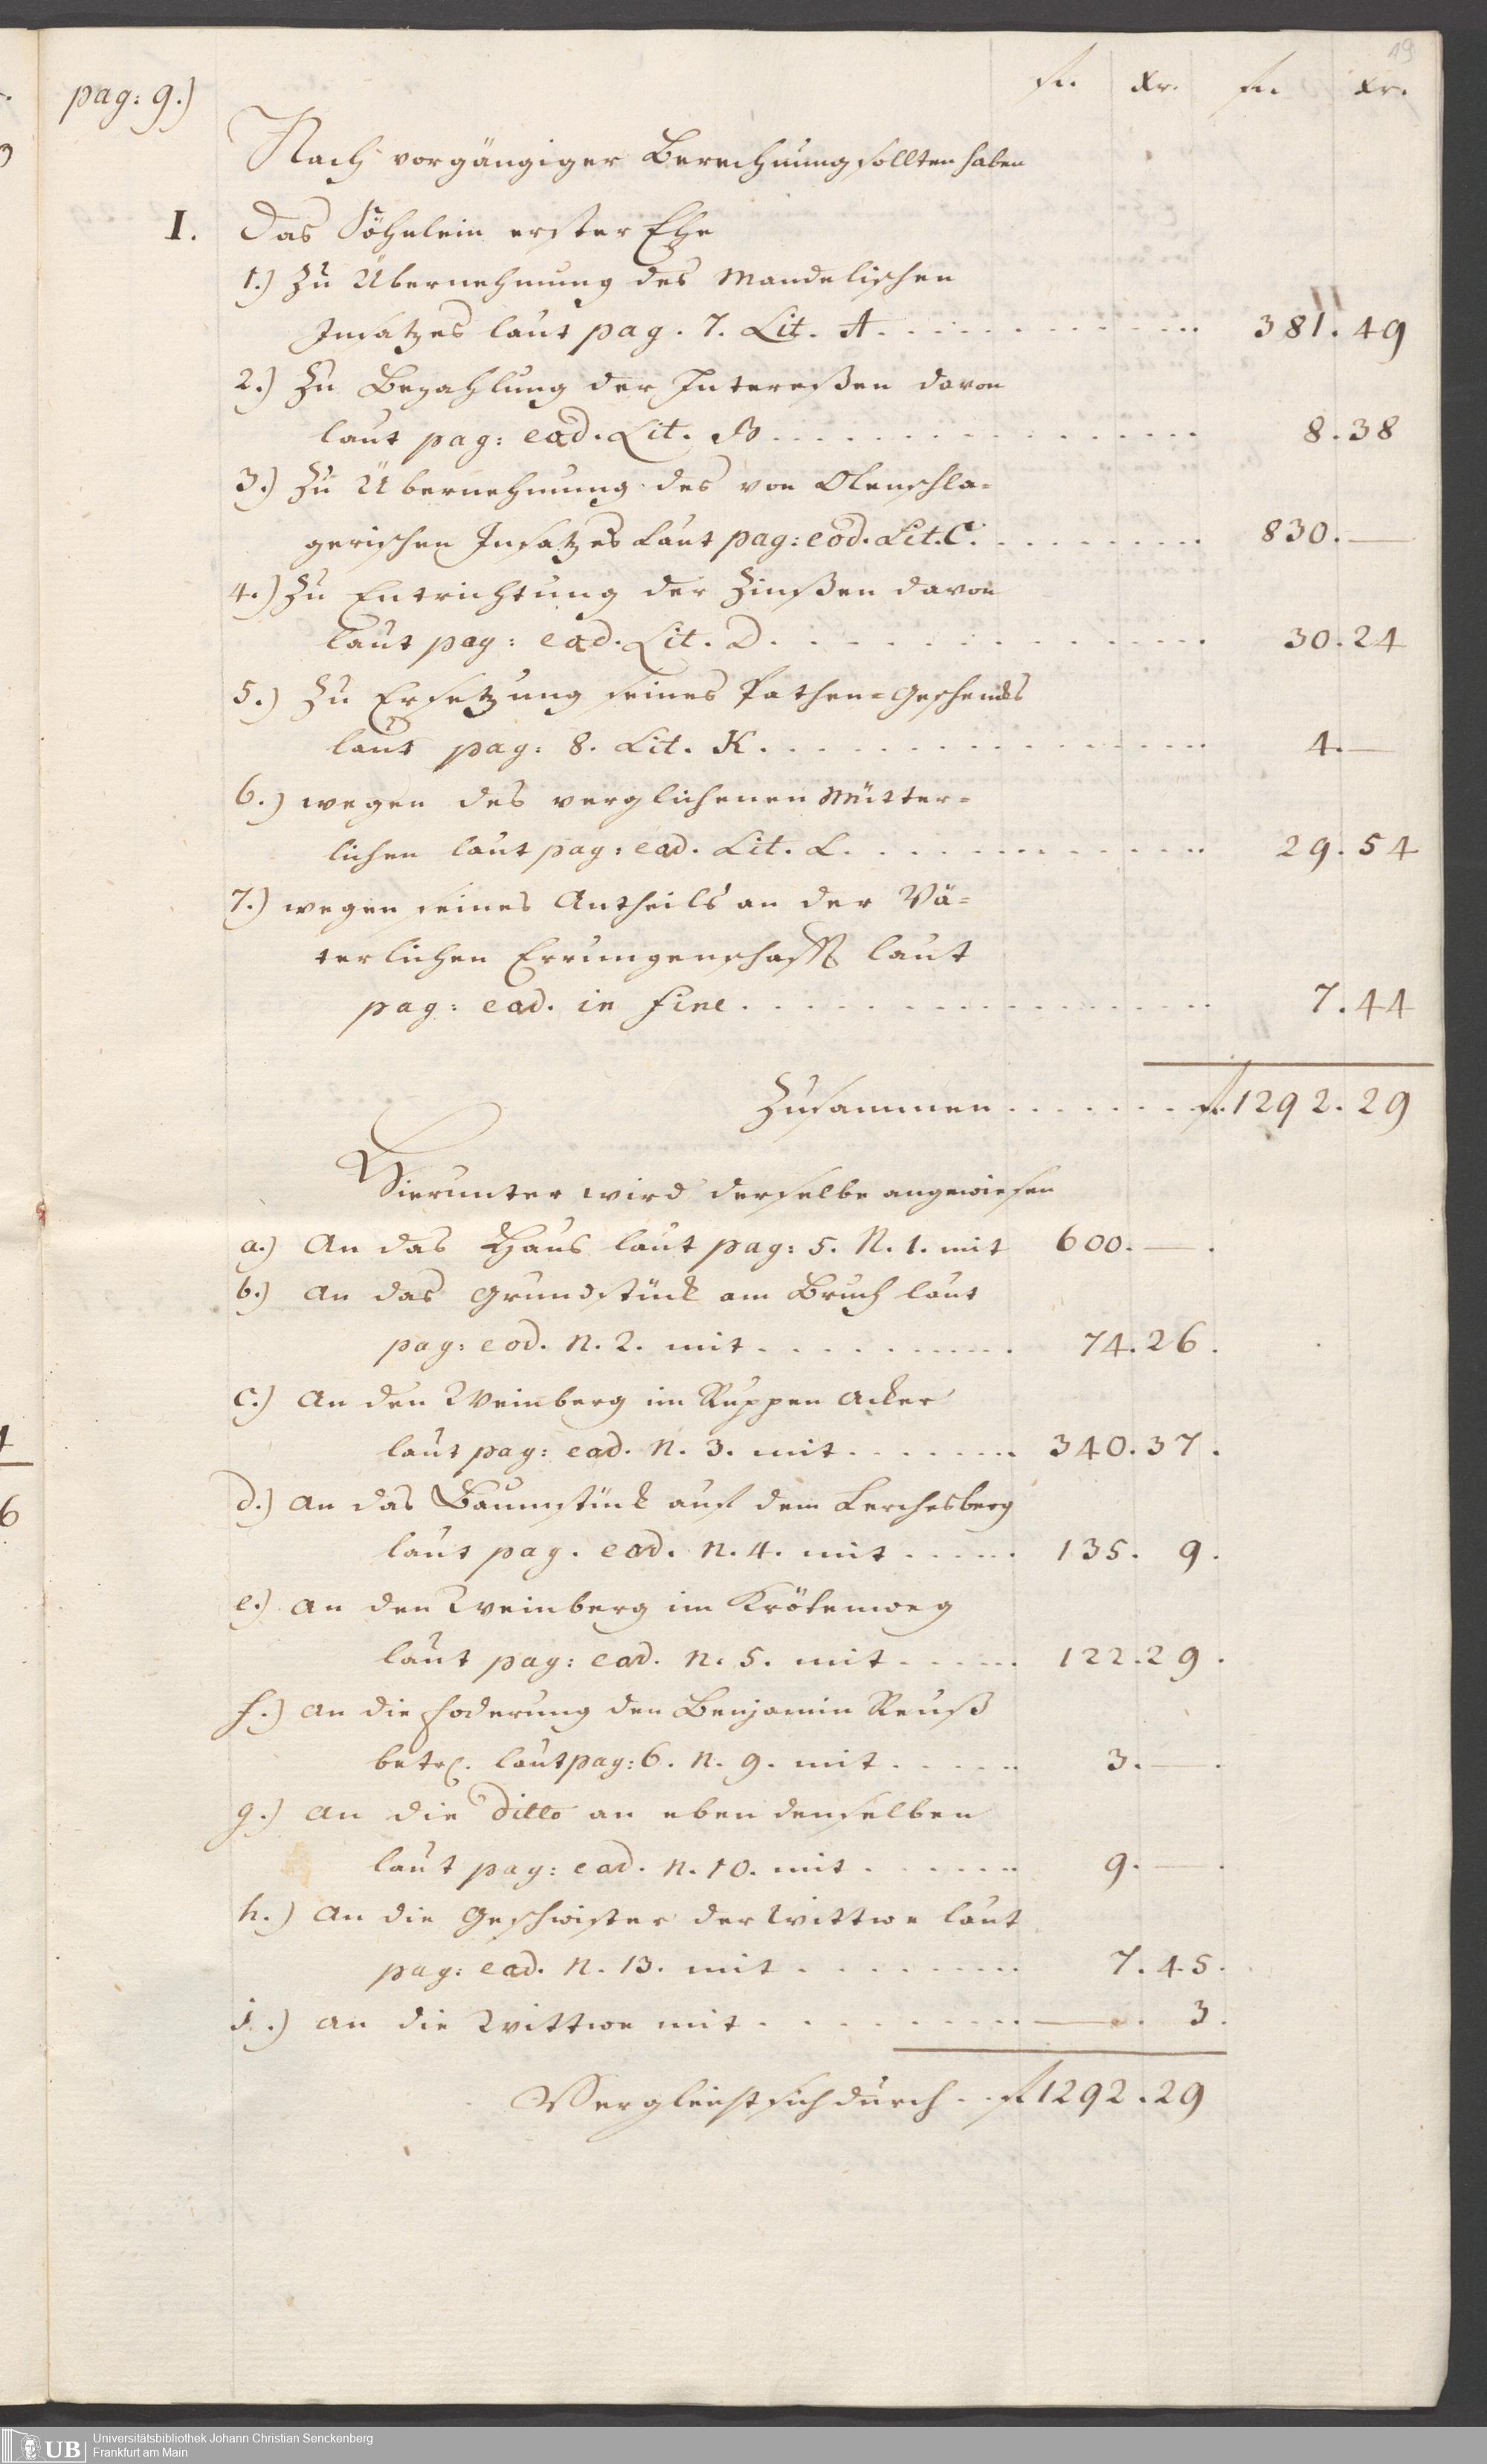 19
fl. xr. fl. xr.
pag: 9.)
Nach vorgängiger Berechnung sollten haben
I. Das Söhnlein erster Ehe
1.) Zu Übernehmung des Mandelischen
Insatzes laut pag. 7. Lit. A. 381. 49
2.) Zu Bezahlung der Intereßen davon
laut pag: ead. Lit. B. 8. 38
3.) Zu Übernehmung des von Olenschla=
gerischen Insatzes laut pag: eod. Lit. C. 830. —
4.) Zu Entrichtung der Zinßen davon
laut pag: ead. Lit. D. 30. 24
5.) Zu Ersetzung seines Pathen=Geschencks
laut pag: 8. Lit. K. 4. —
6.) wegen des verglichenen Mütter=
lichen laut pag: ead. Lit. L. 29. 54
7.) wegen seines Antheils an der Vä=
terlichen Errungenschafft laut
pag: ead. in fine 7. 44
Zusammen fl. 1292. 29
Hierunter wird derselbe angewiesen
a.) An das Haus laut pag: 5. N. 1. mit 600. — .
b.) An das Grundstück am Bruch laut
pag: eod. N. 2. mit 74. 26.
c.) An den Weinberg im Ruppen Acker
laut pag: ead. N. 3. mit 340. 37.
d.) An das Baumstück auf dem Lerchesberg
laut pag. ead. N. 4. mit 135. 9.
e.) An den Weinberg im Krötenweg
laut pag: ead. N. 5. mit 122. 29.
f.) An die Foderung den Benjamin Reuß
betr. laut pag: 6. N. 9. mit 3. — .
g.) An die ditto an eben denselben
laut pag: ead. N. 10. mit 9. — .
h.) An die Geschwister der Wittwe laut
pag: ead. N. 13. mit 7. 45.
i.) An die Wittwe mit — . 3.
Vergleicht sich durch fl 1292. 29
UB
Universitätsbibliothek Johann Christian Senckenberg
Frankfurt am Main